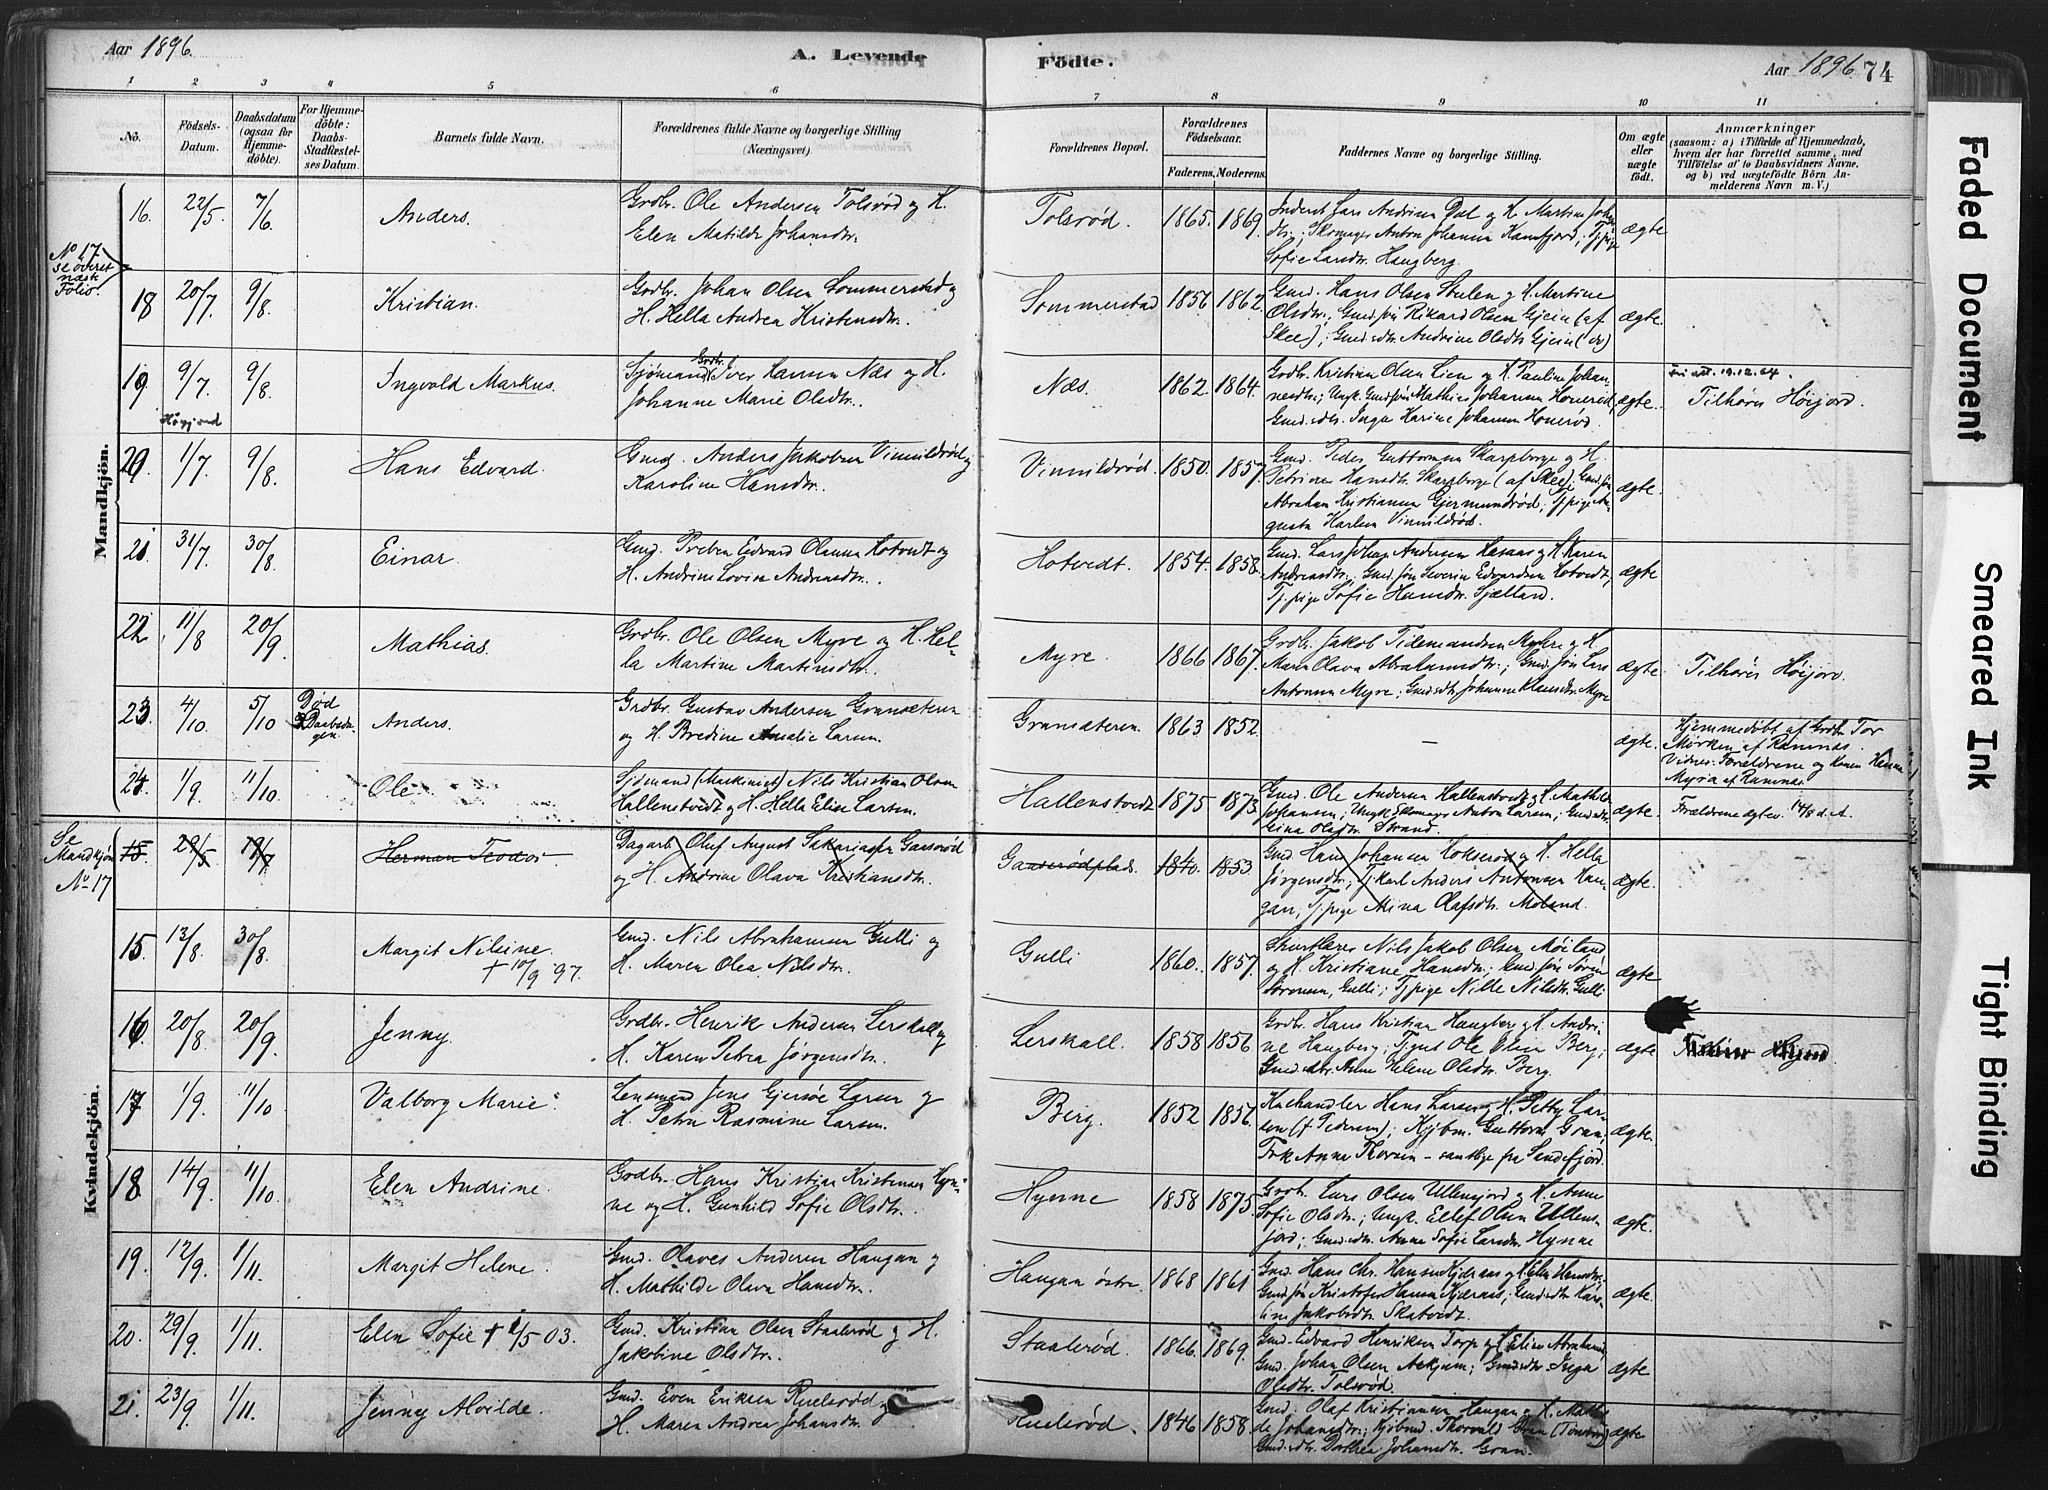 Aar 1896.
A. Levende
Födte.
Aar 1896
74
1 2 3 4 5 6 7 8 9 10 11
No.
Födsels-
Datum.
Daabsdatum
(ogsaa for
Hjemme-
döbte).
For Hjemme-
döbte:
Daabs-
Stadfæstel-
ses Datum.
Barnets fulde Navn.
Forældrenes fulde Navne og borgerlige Stilling
(Næringsvei)
Forældrenes Bopæl.
Forældrenes
Födselsaar.
Faderens.
Moderens.
Faddernes Navne og borgerlige Stilling.
Om ægte
eller
uægte
födt.
Anmærkninger
(saasom: a) i Tilfælde af Hjemmedaab,
hvem der har forrettet samme, med
Tilföielse af to Daabsvidners Navne.
og b) ved uægtefödte Börn An-
melderens Navn m. V.)
Mandkjön.
No 17
se øverst
næste
Folio.
16. 22/5. 7/6 Anders.
Grdbr. Ole Andersen Tolsrød og H.
Elen Matilde Johansdtr.
Tolsrød. 1865. 1869.
Sofie Larsdtr. Haugberg.
ægte
18 20/7. 9/8. Kristian.
Grdbr. Johan Olsen Sommerstad og
H. Hella Andrea Kristensdtr.
Sommerstad 1856 1862.
Gmd. Hans Olsen og H. Martine
Olsdtr.; Gmd. søn Rikard Olsen Gjein (af
Skee); Gmd.sdtr. Andrine Olsdtr. Gjein (do)
ægte.
19 9/7. 9/8. Ingvald Markus.
Høijord
Sjömand Grdbr. Iver Hansen Næs og H.
Johanne Marie Olsdtr.
Næs. 1862. 1864.
Grdbr. Kristian Olsen Lien og H. Pauline Johan-
nesdtr.; Ungk. Gmd.søn Mathias Johansen Honerød,
Gmd.sdtr. Inga Karine Johansen Honerød.
ægte.
19.12.64.
Tilhører Høijord.
20. 1/7. 9/8 Hans Edvard.
Gmd. Anders Jakobsen Vinnildrød og
Karoline Hansdtr.
Vinnildrød. 1850. 1857.
Gmd. Peder Guttormsen Skarpborge og H.
Petrine Hansdtr. Skarpborge (af Skee); Gmd. søn
Abraham Kristiansen Gjermundrød; Tj.pige Au-
gusta Karlsen Vinnildrød.
ægte.
21. 31/7. 30/8. Einar.
Gmd. Preben Edvard Olsen Hotvedt og
H. Andrine Lovise Andreasdtr.
Hotvedt. 1854. 1858.
Gmd. Lars Johan Andersen og H. Karen
Andreasdtr.; Gmd. søn Severin Edvardsen Hotvedt,
Tj.pige Sofie Hansdtr. Sjælland.
ægte
22. 11/8 20/9. Mathias.
Grdbr. Ole Olsen Myre og H. Hel-
la Martine Martinsdtr.
Myre. 1866 1867.
Grdbr. Jakob Tidemandsen Myhre og H.
Maren Olava Abrahamsdtr.; Gmd. søn Lars
Antonsen Myre; Gmdsdtr. Johanne Klausdtr. Myre
ægte.
Tilhører Høijord.
23. 4/10. 5/10
Død
Daabsda-
gen.
Anders.
Grdbr. Gustav Andersen Gransæteren
og H. Bredine Amalie Larsen.
Gransæteren. 1863 1852.
—
ægte.
Hjemmedøbt af Grdbr. Tor
Mørken af Ramnæs.
Vidner: Forældrene og Konen
Myra af Ramnæs.
24. 1/9. 11/10. Ole.
Sjömand (Maskinist) Nils Kristian Olsen
Hallenstvedt og H. Hella Elise Larsen.
Hallenstvedt 1875 1873.
Gmd. Ole Andersen Hallenstvedt og H. Mathilde
Johansen; Ungk. Skomager Anton Larsen; Gmd.sdtr.
Gina Olsdtr. Strand.
ægte.
Forældrene ægtev. 14/8 d. A.
Kvindekjön.
Se
Mandkjön
No 17
15. 29/5 19/7 Herman Teodor.
Dagarb. Oluf August Sakariassen Gaaserød
og H. Andrine Olava Kristiansdtr.
Gaaserødplads. 1840. 1853.
Gmd. Hans Johansen Kokserød og H. Hella
Jørgensdtr.; Tj.karl Anders Antonsen Hau-
gan; Tj.pige Mina Olafsdtr. Moland.
ægte.
15. 13/8. 30/8. Margit Nilsine.
+ 10/9 97.
Gmd. Nils Abrahamsen Gulli og
H. Maren Olea Nilsdtr.
Gulli 1860. 1857.
Nils Jakob Olsen Møiland
og H. Kristiane Hansdtr.; Gmd. søn Søren
Sørensen, Gulli; Tj.pige Nille Nilsdtr. Gulli
ægte.
16. 20/8. 20/9. Jenny.
Grdbr. Henrik Andersen Lerskall og
H. Karen Petra Jørgensdtr.
Lerskall. 1858 1856
Grdbr. Hans Kristian Haugberg og H. Andri-
ne Haugberg; Tj.gut Ole Olsen Berg;
Gmd.sdtr. Anne Helene Olsdtr. Berg.
ægte
17 1/9. 11/10 Valborg Marie.
Lensmand Jens Gjersøe Larsen og
H. Petra Rasmine Larsen.
Berg. 1852 1856.
Hans Larsen og H. Petty Lar-
sen (f. Pedersen); Kjöbm. Guttorm Gran;
Frk Anna Thorsen – samtlige fra Sandefjord.
ægte.
18. 14/9. 11/10. Elen Andrine.
Grdbr. Hans Kristian Kristensen Hyn-
ne og H. Gunhild Sofie Olsdtr.
Hynne 1858 1875.
Grdbr. Lars Olsen Ullensjord og H. Anne
Sofie Olsdtr.; Ungk. Ellef Olsen Ullens-
jord; Gmd.sdtr. Anne Sofie Larsdtr. Hynne
ægte.
19. 12/9. 1/11. Margit Helene.
Gmd. Olaves Andersen Haugan og
H. Mathilde Olava Hansdtr.
Haugan östre. 1868 1861
Gmd. Hans Chr. Hansen Kjærnaas og H. Elen Hansdtr.;
Gmd.søn Kristofer Hansen Kjærnaas; Gmdsdtr. Kare-
line Jakobsdtr. Skatvedt.
ægte.
20. 29/9. 1/11. Elen Sofie + 1/5 03.
Gmd. Kristian Olsen Staalerød og H.
Jakobine Olsdtr.
Staalerød. 1866. 1869.
Gmd. Edvard Henriksen Torp og H. Eline
Gmd. Johan Olsen; Gmd.sdtr. Inga
Olsdtr. Tolsrød.
ægte
21. 23/9. 1/11. Jenny Alvilde.
Gmd. Even Eriksen Ruelsrød og
H. Maren Andrea Johansdtr.
Ruelsrød. 1846 1858.
Gmd. Olaf Kristiansen Haugan og H. Mathil-
de Johansdtr.; Kjöbmd. Thorvald Gran (Tönsberg)
Gmd.sdtr. Dorthea Johansdtr. Gran.
ægte
Faded Document
Smeared Ink
Tight Binding